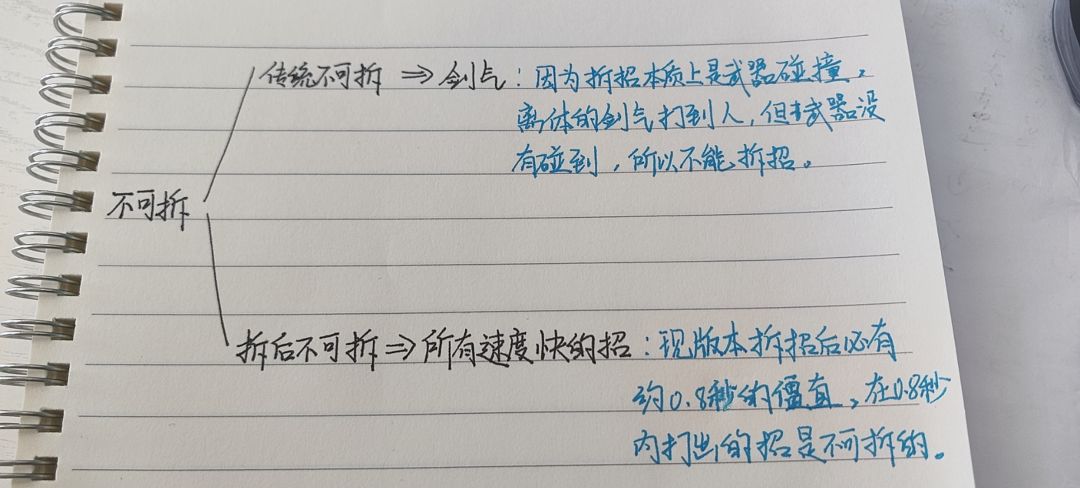 传统不可拆 ⇒ 剑气：因为拆招本质上是武器碰撞，
离体的剑气打到人，但武器没
有碰到，所以不能拆招。
不可拆
拆后不可拆 ⇒ 所有速度快的招：现版本拆招后必有
约0.8秒的僵直，在0.8秒
内打出的招是不可拆的。